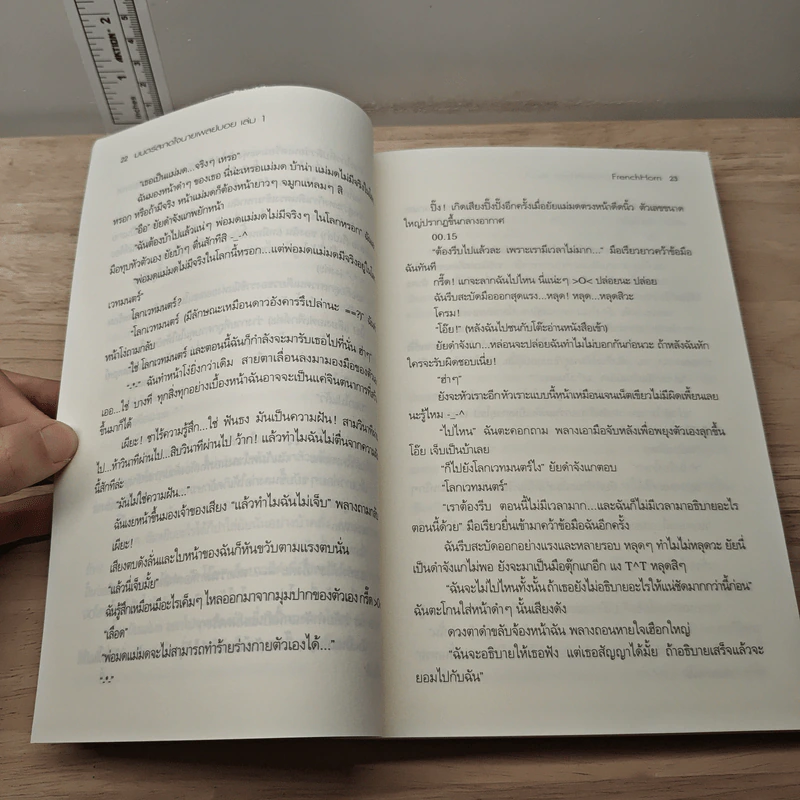 22 มนตร์สะกดใจนายเพลย์บอย เล่ม 1
"เธอเป็นแม่มด...จริงๆ เหรอ"
ฉันมองหน้าดำๆ ของเธอ นี่น่ะเหรอแม่มด บ้าน่า แม่มดไม่มีจริงใน
หรอก หรือถ้ามีจริง หน้าแม่มดก็ต้องหน้ายาวๆ จมูกแหลมๆ สิ
"อือ" ยัยดำจังแกพยักหน้า
"ฉันต้องบ้าไปแล้วแน่ๆ พ่อมดแม่มดไม่มีจริงๆ ในโลกหรอก"
มือทุบหัวตัวเอง ยัยบ้าๆ ตื่นสักทีสิ -_-^
"พ่อมดแม่มดไม่มีจริงในโลกนี้หรอก...แต่พ่อมดแม่มดมีจริงอยู่ใน
เวทมนตร์"
โลกเวทมนตร์?
"โลกเวทมนตร์ (มีลักษณะเหมือนดาวอังคารรึเปล่านะ ==?)"
หน้าโง่ถามกลับ
"ใช่ โลกเวทมนตร์ และตอนนี้ฉันก็กำลังจะมารับเธอไปที่นั่น ฮ่าๆ"
"-*-" ฉันทำหน้าโง่ยิ่งกว่าเดิม สายตาเลื่อนลงมามองมือของตัวเอง
เออ...ใช่ บางที ทุกสิ่งทุกอย่างเบื้องหน้าฉันอาจจะเป็นแค่จินตนาการที่
ขึ้นมาก็ได้
เผียะ! ชาไร้ความรู้สึก...ใช่ ฟันธง มันเป็นความฝัน! สามวินาที
ไป...ห้าวินาทีผ่านไป...สิบวินาทีผ่านไป ว้าก! แล้วทำไมฉันไม่ตื่นจากความ
นี้สักทีล่ะ
"มันไม่ใช่ความฝัน..."
ฉันเงยหน้าขึ้นมองเจ้าของเสียง "แล้วทำไมฉันไม่เจ็บ" พลางถาม
เผียะ!
เสียงตบดังลั่นและใบหน้าของฉันก็หันขวับตามแรงตบนั่น
"แล้วนี่เจ็บมั้ย"
ฉันรู้สึกเหมือนมีอะไรเค็มๆ ไหลออกมาจากมุมปากของตัวเอง กรี๊ด >O
"เลือด"
"พ่อมดแม่มดจะไม่สามารถทำร้ายร่างกายตัวเองได้..."
"-*-"
FrenchHorn 23
ปิ๊ง! เกิดเสียงปิ๊งปิ๊งอีกครั้งเมื่อยัยแม่มดตรงหน้าดีดนิ้ว ตัวเลขขนาด
ใหญ่ปรากฏขึ้นกลางอากาศ
00.15
"ต้องรีบไปแล้วละ เพราะเรามีเวลาไม่มาก..." มือเรียวยาวคว้าข้อมือ
ฉันทันที
กรี๊ด! แกจะลากฉันไปไหน นี่แน่ะๆ >O< ปล่อยนะ ปล่อย
ฉันรีบสะบัดมือออกสุดแรง...หลุด! หลุด...หลุดสิวะ
โครม!
"โอ๊ย!" (หลังฉันไปชนกับโต๊ะอ่านหนังสือเข้า)
ยัยดำจังแก...หล่อนจะปล่อยฉันทำไมไม่บอกกันก่อนวะ ถ้าหลังฉันหัก
ใครจะรับผิดชอบเนี่ย!
"ฮ่าๆ"
ยังจะหัวเราะอีกหัวเราะแบบนี้หน้าเหมือนเจนเน็ตเขียวไม่มีผิดเพี้ยนเลย
นะรู้ไหม -_-^
"ไปไหน" ฉันตะคอกถาม พลางเอามือจับหลังเพื่อพยุงตัวเองลุกขึ้น
โอ๊ย เจ็บเป็นบ้าเลย
"ก็ไปยังโลกเวทมนตร์ไง" ยัยดำจังแกตอบ
"โลกเวทมนตร์"
"เราต้องรีบ ตอนนี้ไม่มีเวลามาก...และฉันก็ไม่มีเวลามาอธิบายอะไร
ตอนนี้ด้วย" มือเรียวยื่นเข้ามาคว้าข้อมือฉันอีกครั้ง
ฉันรีบสะบัดออกอย่างแรงและหลายรอบ หลุดๆ ทำไมไม่หลุดวะ ยัยนี่
เป็นดำจังแกไม่พอ ยังจะมาเป็นมือตุ๊กแกอีก แง T^T หลุดสิๆ
"ฉันจะไม่ไปไหนทั้งนั้น ถ้าเธอยังไม่อธิบายอะไรให้แน่ชัดมากกว่านี้ก่อน"
ฉันตะโกนใส่หน้าดำๆ นั้นเสียงดัง
ดวงตาดำขลับจ้องหน้าฉัน พลางถอนหายใจเฮือกใหญ่
"ฉันจะอธิบายให้เธอฟัง แต่เธอสัญญาได้มั้ย ถ้าอธิบายเสร็จแล้วจะ
ยอมไปกับฉัน"